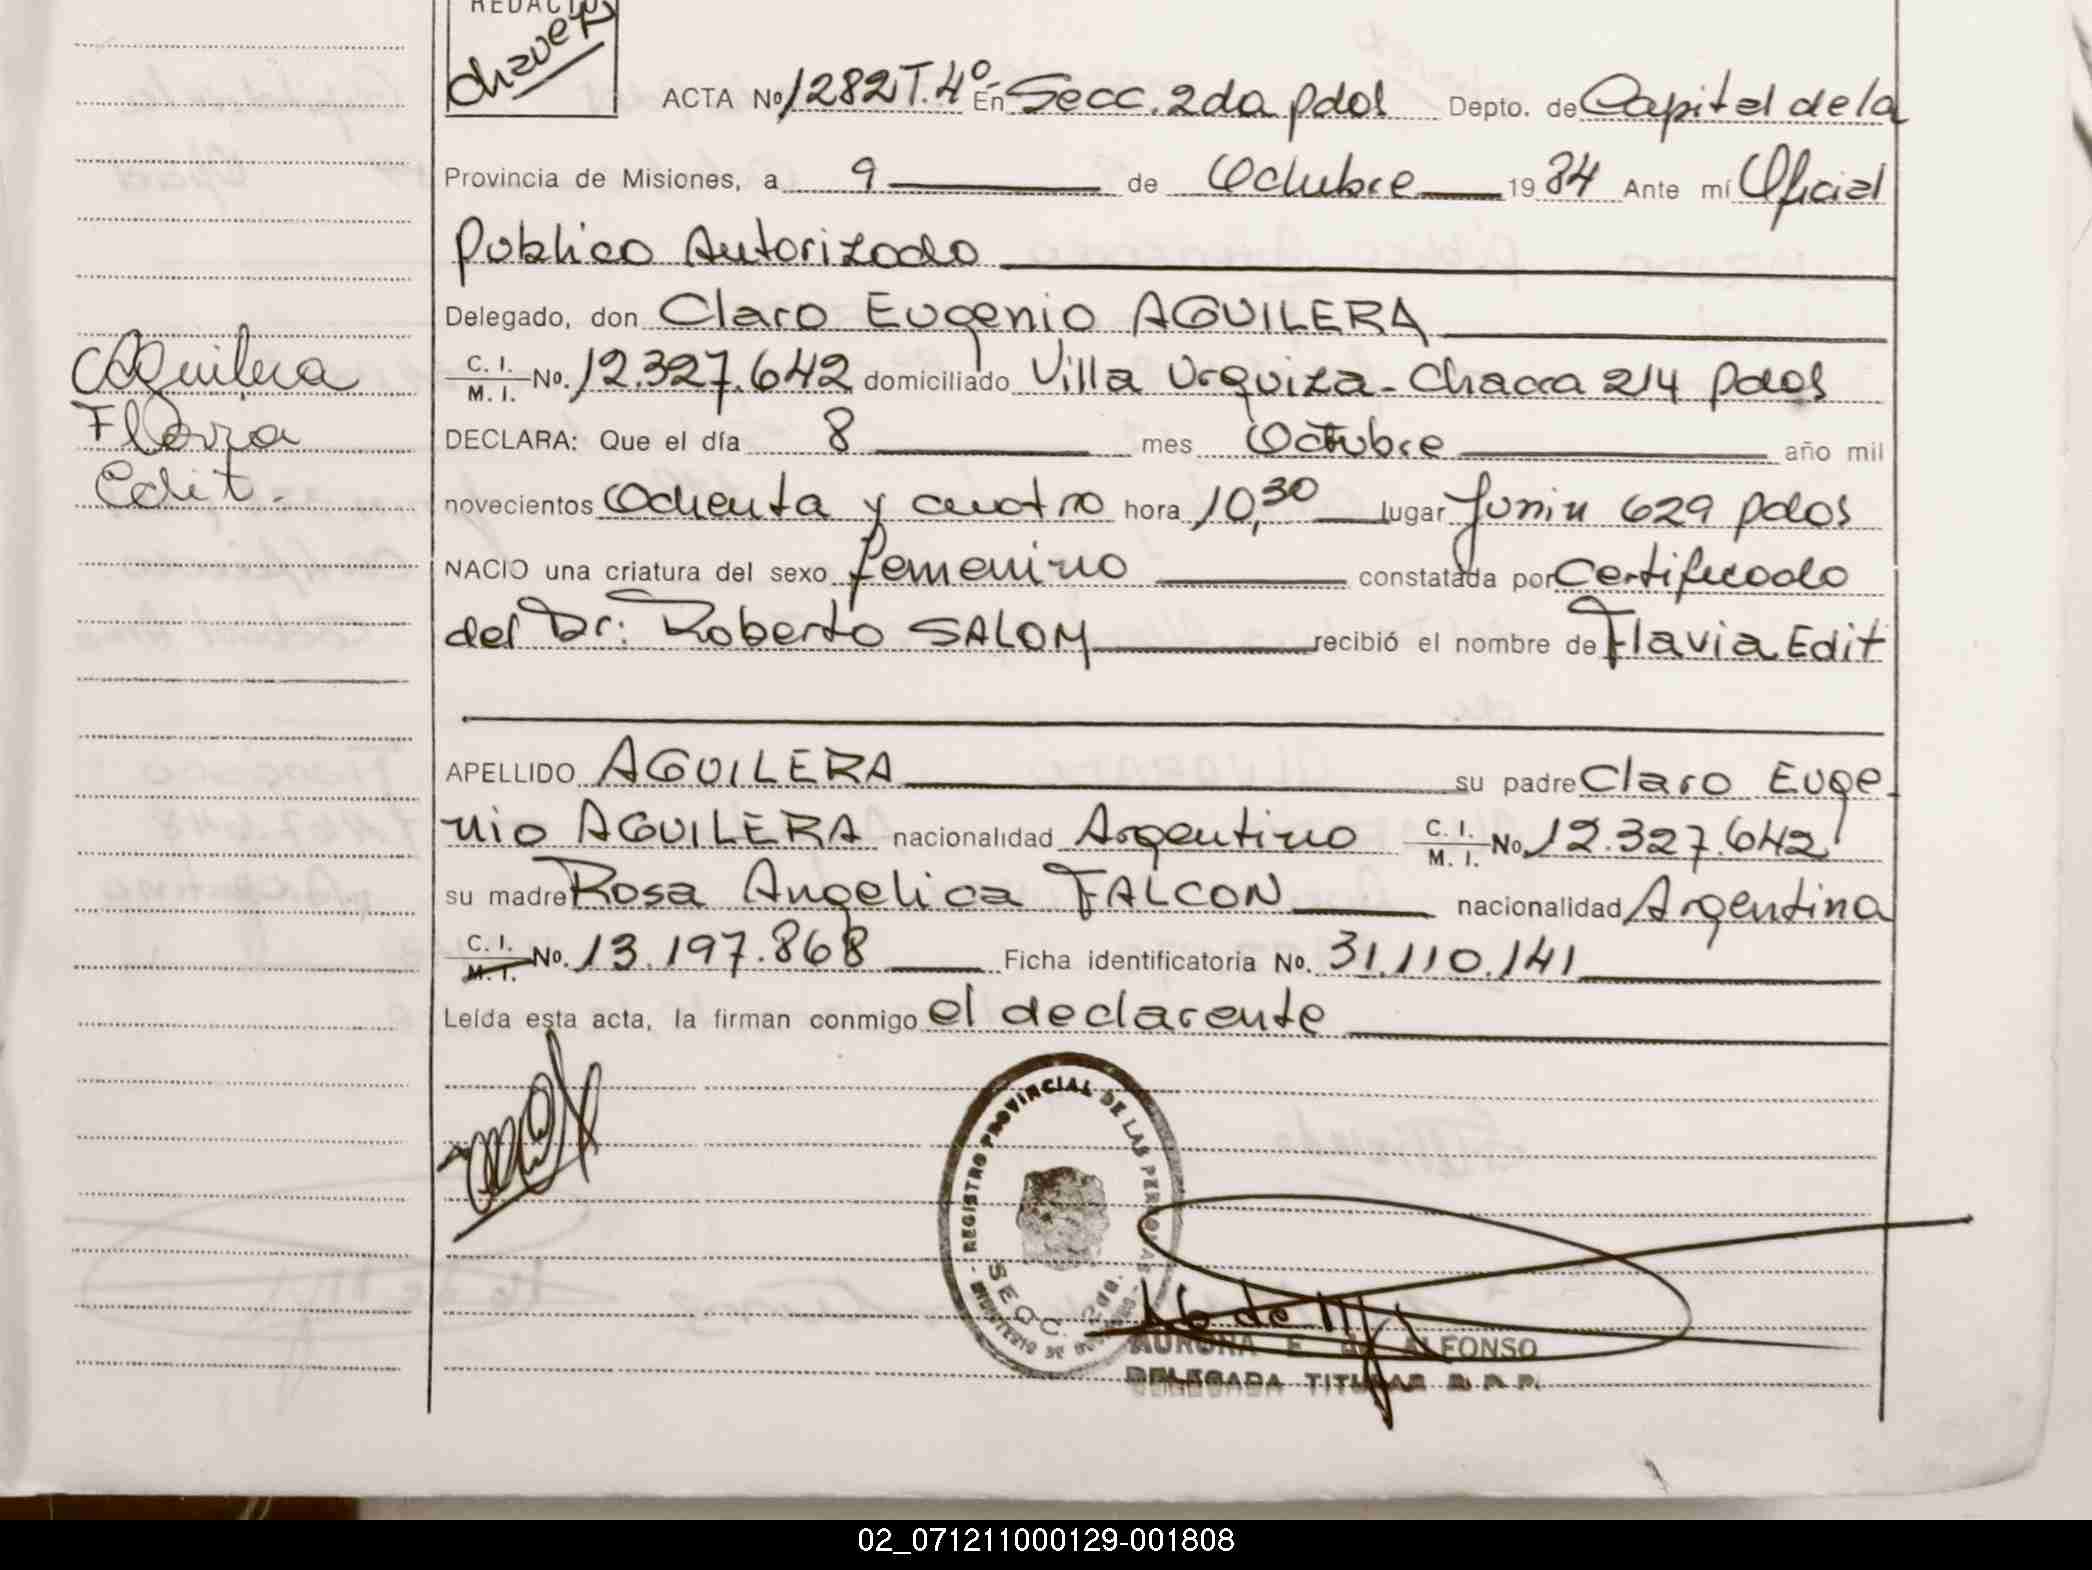 REDACTOR
Chavez
ACTA Nº 1282 T.4º En Secc. 2da pdas Depto. de Capital de la
Provincia de Misiones, a 9 de Octubre 1984 Ante mí Oficial
Publico Autorizado
Delegado, don Claro Eugenio AGUILERA
C. I. M. I. No. 12.327.642 domiciliado Villa Urquiza - Chacra 214 pdas
DECLARA: Que el día 8 mes Octubre año mil
novecientos Ochenta y cuatro hora 10,30 lugar Junin 629 pdas
NACIO una criatura del sexo femenino constatada por Certificado
del Dr: Roberto SALOM recibió el nombre de Flavia Edit
APELLIDO AGUILERA su padre Claro Euge-
nio AGUILERA nacionalidad Argentino C. I. M. I. No. 12.327.642
su madre Rosa Angelica FALCON nacionalidad Argentina
C. I. M. I. No. 13.197.868 Ficha identificatoria No. 31.110.141
Leída esta acta, la firman conmigo el declarante
Aguilera
Flavia
Edit.
REGISTRO PROVINCIAL DE LAS PERSONAS
SECC.
MINISTERIO DE
AURORA E. ALFONSO
DELEGADA TITULAR R. P. P.
02_071211000129-001808